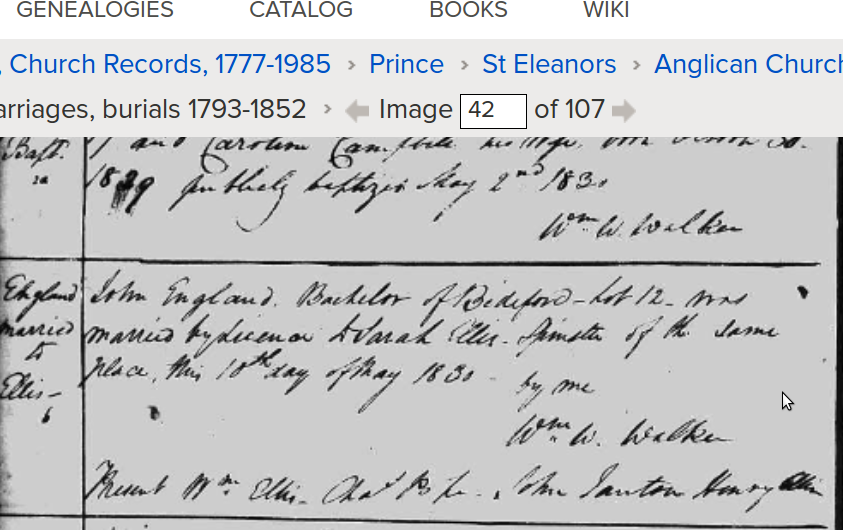 GENEALOGIES CATALOG BOOKS WIKI
, Church Records, 1777-1985 › Prince › St Eleanors › Anglican Church
arriages, burials 1793-1852 › Image 42 of 107
Bapt. and Caroline Campbell his wife, born
1829 publicly baptized May 2nd 1830
Wm W. Walker
England John England. Bachelor of Bideford - Lot 12 - was
married married by Licence to Sarah Ellis - Spinster of the same
to place, this 10th day of May 1830 - by me
Ellis -
6 Wm W. Walker
Present Wm Ellis - Chas John Henry Ellis